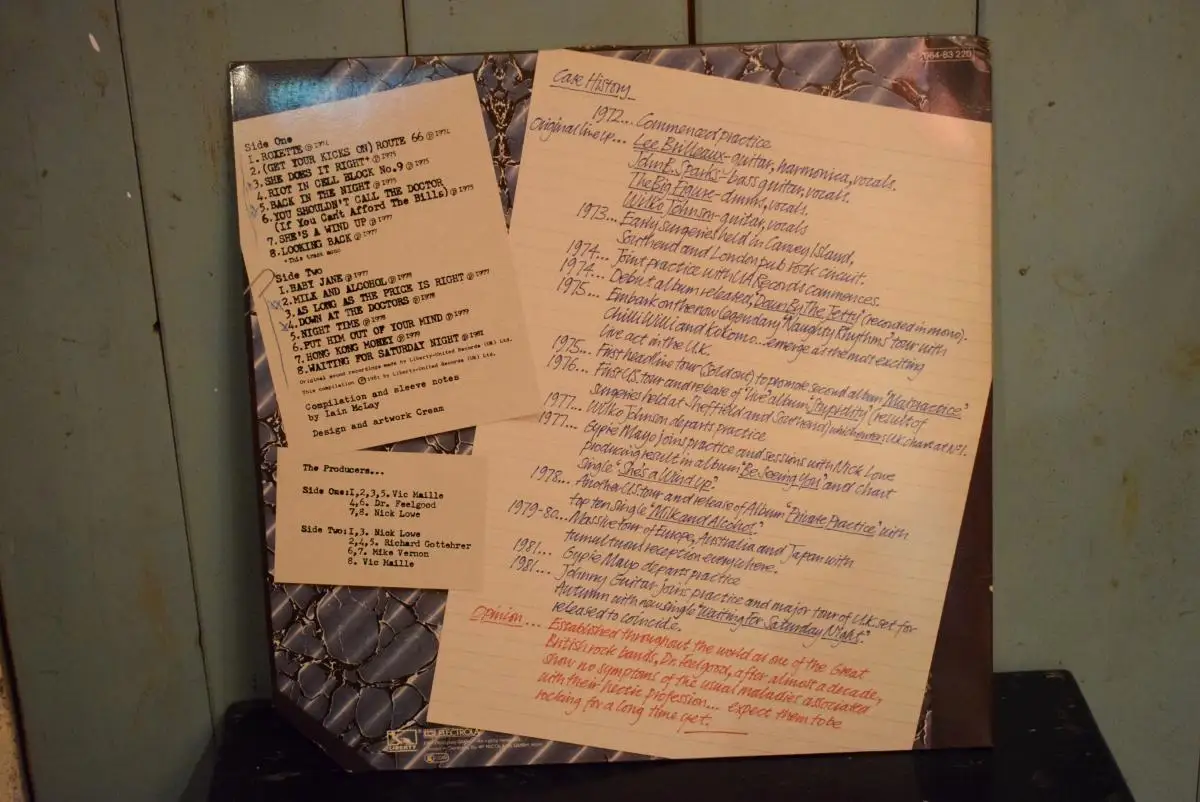 064-83 220
Side One
1. ROXETTE ℗ 1974
2. (GET YOUR KICKS ON) ROUTE 66 ℗ 1974
3. SHE DOES IT RIGHT* ℗ 1975
4. RIOT IN CELL BLOCK No.9 ℗ 1975
5. BACK IN THE NIGHT ℗ 1975
6. YOU SHOULDN'T CALL THE DOCTOR
(If You Can't Afford The Bills) ℗ 1975
7. SHE'S A WIND UP ℗ 1977
8. LOOKING BACK ℗ 1977
*This track mono
Side Two
1. BABY JANE ℗ 1977
2. MILK AND ALCOHOL ℗ 1978
3. AS LONG AS THE PRICE IS RIGHT ℗ 1977
4. DOWN AT THE DOCTORS ℗ 1978
5. NIGHT TIME ℗ 1978
6. PUT HIM OUT OF YOUR MIND ℗ 1979
7. HONG KONG MONEY ℗ 1979
8. WAITING FOR SATURDAY NIGHT ℗ 1981
Original sound recordings made by Liberty-United Records (UK) Ltd.
This compilation ℗ 1981 by Liberty-United Records (UK) Ltd.
Compilation and sleeve notes
by Iain McLay
Design and artwork Cream
The Producers...
Side One: 1,2,3,5. Vic Maille
4,6. Dr. Feelgood
7,8. Nick Lowe
Side Two: 1,3. Nick Lowe
2,4,5. Richard Gottehrer
6,7. Mike Vernon
8. Vic Maille
Case History
1972... Commenced practice
Original line up... Lee Brilleaux - guitar, harmonica, vocals.
John B. Sparks - bass guitar, vocals.
The Big Figure - drums, vocals.
Wilko Johnson - guitar, vocals
1973... Early surgeries held in Canvey Island,
Southend and London pub rock circuit.
1974... Joint practice with UA Records commences.
1974... Debut album released, "Down By The Jetty" (recorded in mono).
1975... Embark on the now legendary "Naughty Rhythms" tour with
Chilli Willi and Kokomo... emerge as the most exciting
live act in the U.K.
1975... First headline tour (sold out) to promote second album "Malpractice"
1976... First U.S. tour and release of 'live' album "Stupidity" (result of
surgeries held at Sheffield and Southend) which enters U.K. chart at No1.
1977... Wilko Johnson departs practice
1977... Gypie Mayo joins practice and sessions with Nick Lowe
producing result in album "Be Seeing You" and chart
single "She's a Wind Up".
1978... Another U.S. tour and release of Album "Private Practice" with
top ten single "Milk and Alcohol".
1979-80... Massive tour of Europe, Australia and Japan with
tumultuous reception everywhere.
1981... Gypie Mayo departs practice
1981... Johnny Guitar joins practice and major tour of U.K. set for
Autumn with new single "Waiting for Saturday Night"
released to coincide.
Opinion... Established throughout the world as one of the Great
British rock bands, Dr. Feelgood, after almost a decade,
show no symptoms of the usual maladies associated
with their hectic profession... expect them to be
rocking for a long time yet.
LIBERTY
EMI ELECTROLA